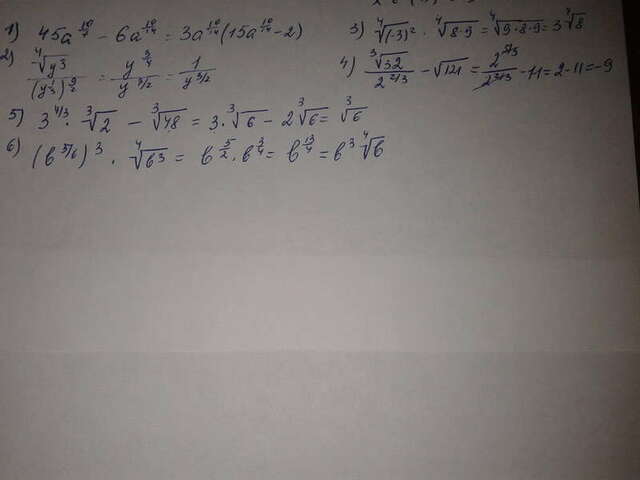 1) 45a^{10/14} - 6a^{10/14} = 3a^{10/14}(15a^{10/14} - 2)
2) \frac{\sqrt[4]{y^3}}{(y^{\frac{1}{2}})^{\frac{9}{2}}} = \frac{y^{\frac{3}{4}}}{y^{3/2}} = \frac{1}{y^{3/2}}
3) \sqrt[4]{(-3)^2} \cdot \sqrt[4]{8 \cdot 9} = \sqrt[4]{9 \cdot 8 \cdot 9} = 3\sqrt[4]{8}
4) \frac{\sqrt[3]{32}}{2^{2/3}} - \sqrt{121} = \frac{2^{5/3}}{2^{2/3}} - 11 = 2 - 11 = -9
5) 3^{4/3} \cdot \sqrt[3]{2} - \sqrt[3]{48} = 3 \cdot \sqrt[3]{6} - 2\sqrt[3]{6} = \sqrt[3]{6}
6) (b^{5/6})^3 \cdot \sqrt[4]{b^3} = b^{\frac{5}{2}} \cdot b^{\frac{3}{4}} = b^{\frac{13}{4}} = b^3 \sqrt[4]{b}